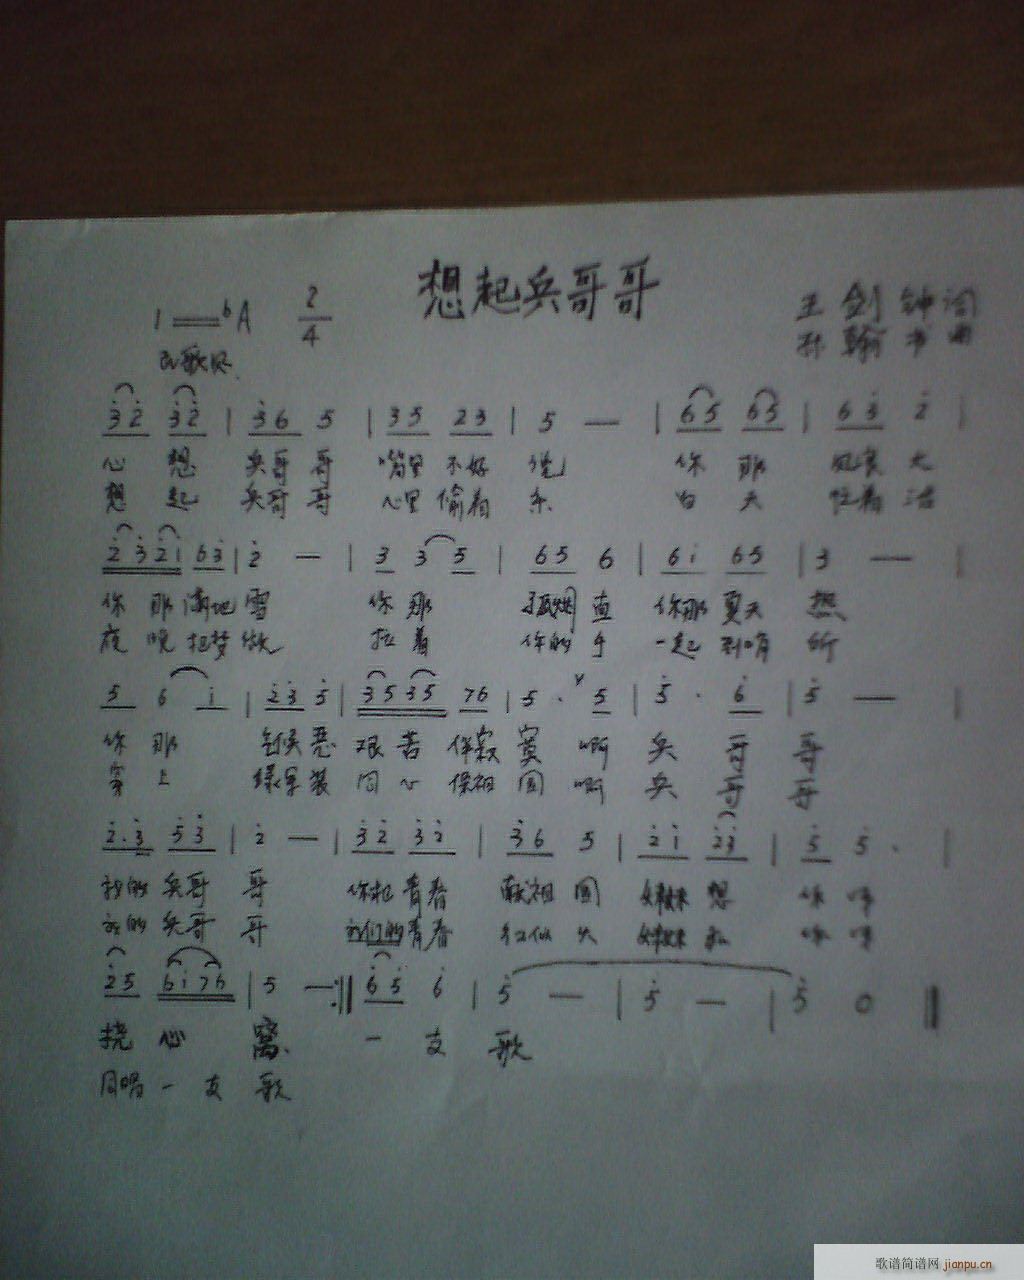 想起兵哥哥
1=♭A 2/4
王剑钟词
孙翰书曲
民歌风
3̇2̇ 3̇2̇ | 3̇6 5 | 35 23 | 5 — | 65 65 | 63̇ 2̇ |
心想 兵哥哥 嘴里不好说 你那 风浪大
想起 兵哥哥 心里偷着乐 白天 忙着活
2̇3̇2̇1̇ 63̇ | 2̇ — | 3 35 | 65 6 | 61̇ 65 | 3 — |
你那满地雪 你那 孤烟直 你那夏天热
夜晚把梦做 拉着 你的手 一起到哨所
5 61̇ | 2̇3̇ 5̇ | 3535 76 | 5 · ∨ 5 | 5̇ · 6̇ | 5̇ — |
你那 气候恶 艰苦伴寂寞 啊 兵哥哥
穿上 绿军装 同心保祖国 啊 兵哥哥
2̇·3̇ 5̇3̇ | 2̇ — | 3̇2̇ 3̇2̇ | 3̇6 5 | 2̇1̇ 2̇3̇ | 5̇ 5̇ · |
我的兵哥哥 你把青春 献祖国 妹妹想 你呀
我的兵哥哥 我们的青春 红似火 妹妹和 你呀
2̇5 61̇76 | 5 — :‖ 6̇5̇ 6̇ | 5̇ — | 5̇ — | 5̇ 0 ‖
挠心窝 一支歌
同唱一支歌
歌谱简谱网 jianpu.cn